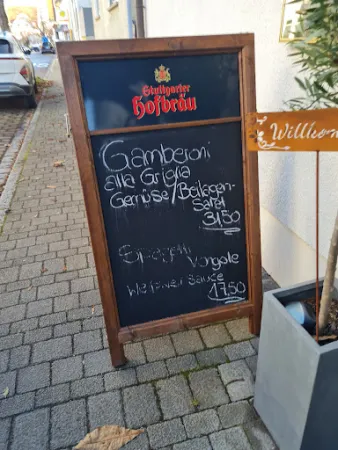 Stuttgarter
Hofbräu
Gamberoni
alla Griglia
Gemüse/Beilagen-
Salat
31,50
Vongole
Weißwein Sauce
17,50
Willkom